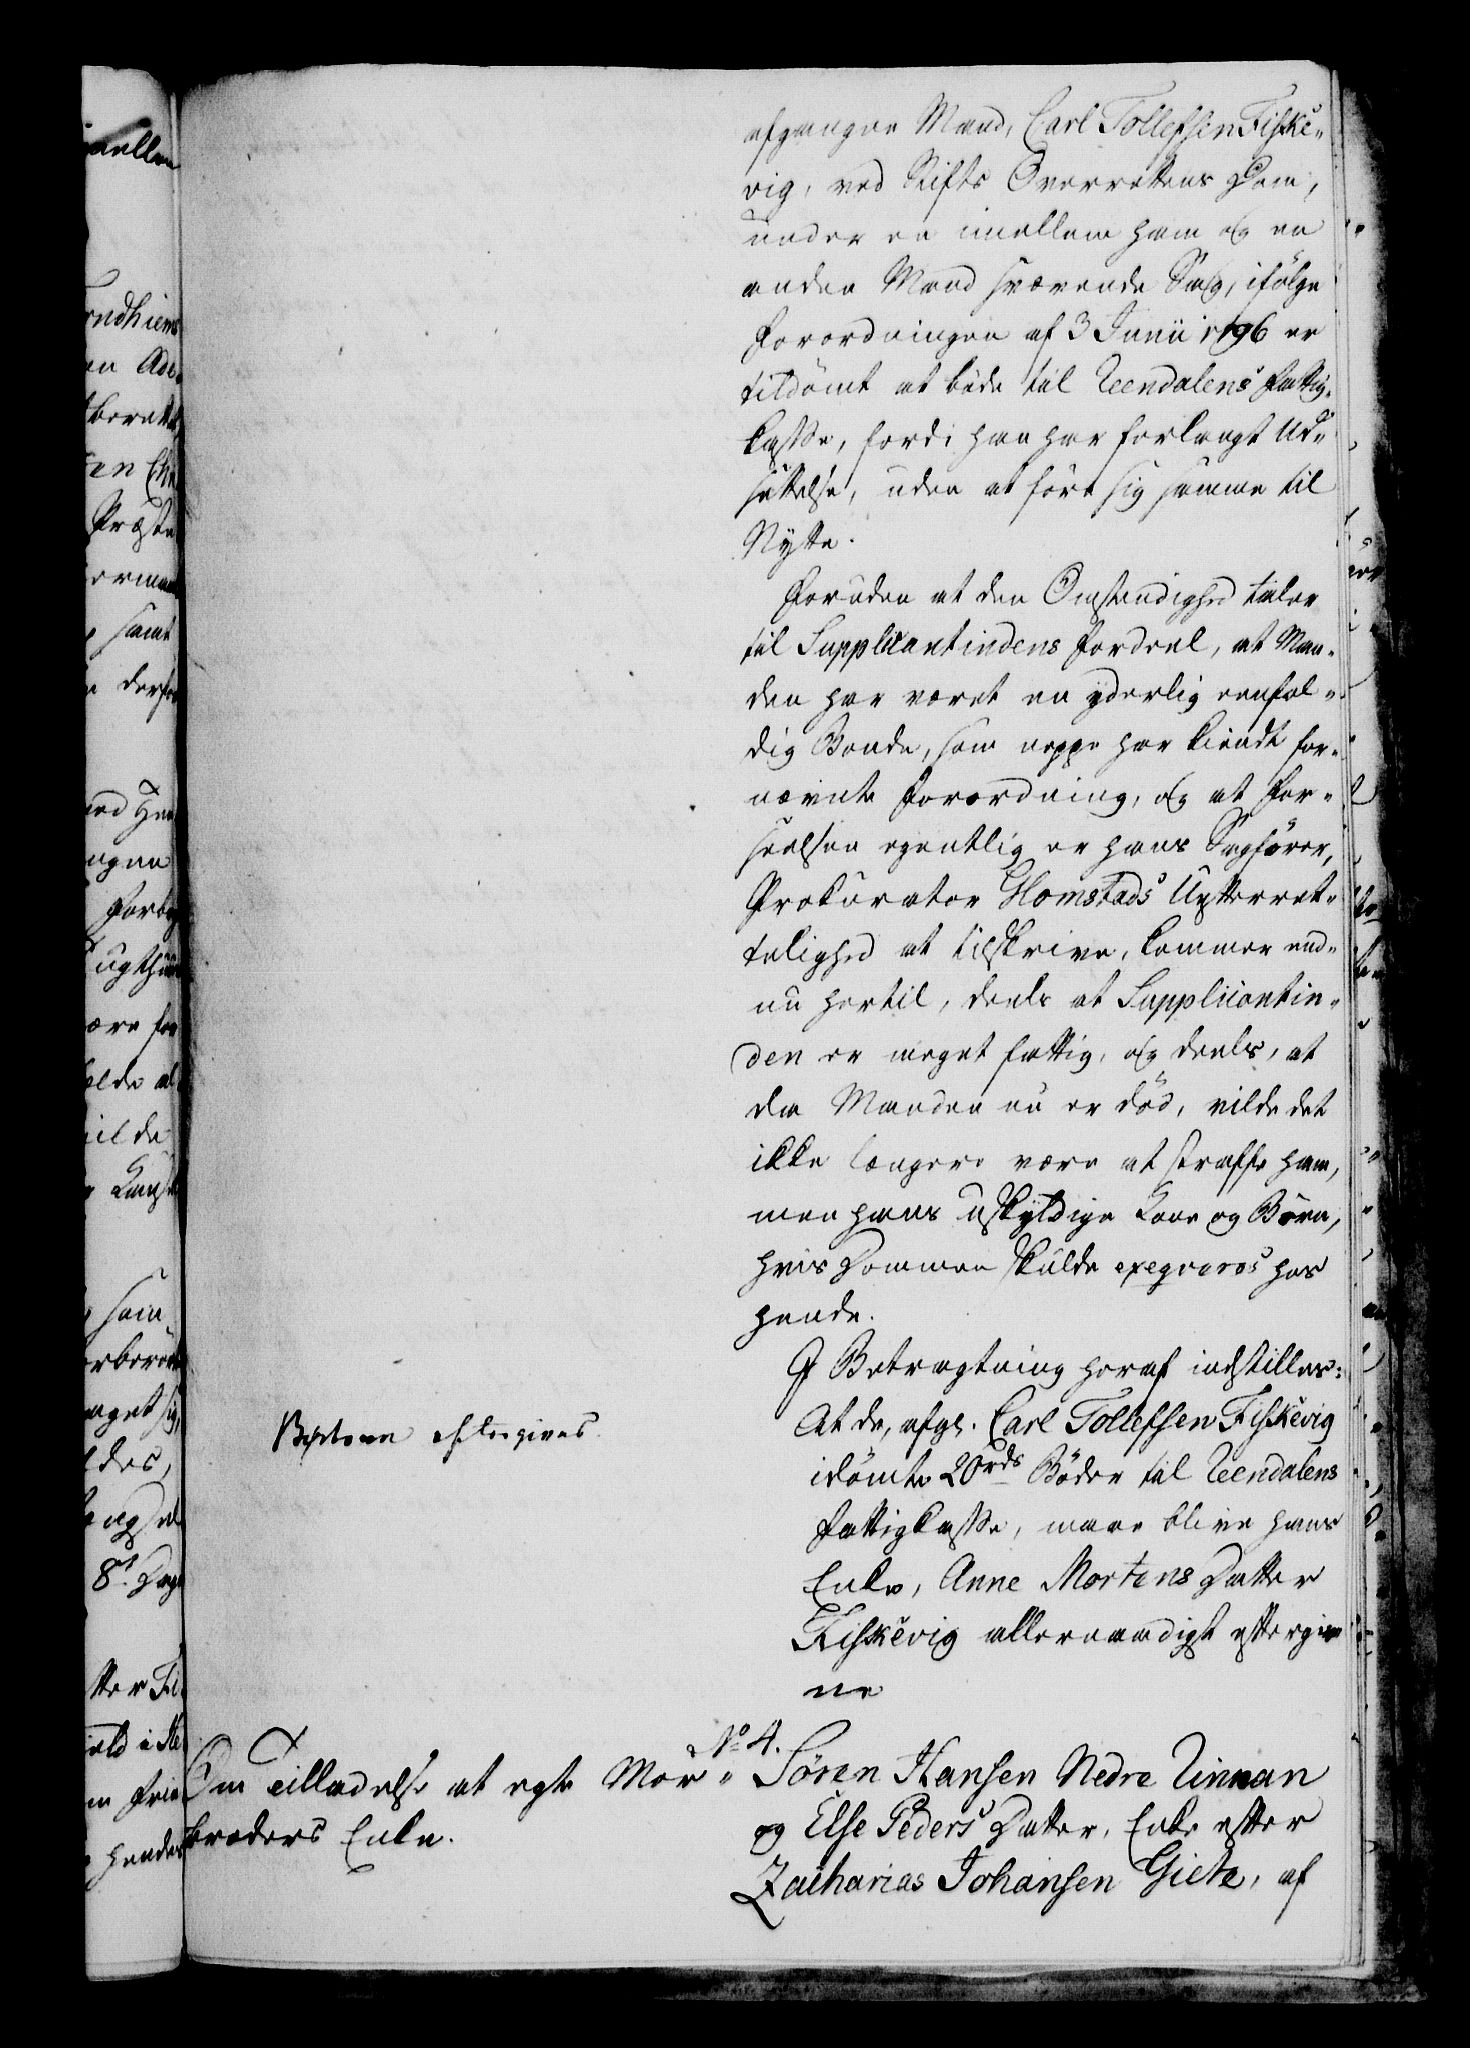 afgangne Mand, Carl Tollefsen Fiske-
vig, ved Stifts Overrettens Dom,
under en imellem ham og en
anden Mand svævende Sag, ifölge
Forordningen af 3 Junii 1796 er
tildömt at böde til Leendalens Fattig-
kasse, fordi han har forlangt Ud-
sættelse, uden at före sig samme til
Nytte.
Foruden at den Omstændighed taler
til Supplicantindens Fordeel, at Man-
den har været en yderlig eenfol-
dig Bonde, som neppe har kiendt for-
nævnte Forordning, og at For-
seelsen egentlig er hans Sagförer,
Prokurator Homstads Uefterret-
telighed at tilskrive, kommer end-
nu hertil, deels at Supplicantin-
den er meget fattig, og deels, at
da Manden nu er död, vilde det
ikke længere være at straffe ham,
men hans uskyldige Kone og Börn,
hvis Dommen skulde exeqveres hos
hende.
I Betragtning heraf indstilles:
At de, afg. Carl Tollefsen Fiskevig
idömte 20 rds Böder til Leendalens
Fattigkasse, maae blive hans
Enke, Anne Mortens Datter
Fiskevig allernaadigst eftergiv-
ne
eftergives.
No 4.
Om Tilladelse at egte Mor-
broders Enke.
Sören Hansen Nedre Tinnan
og Else Peders Datter, Enke efter
Zacharias Johansen Giete, af